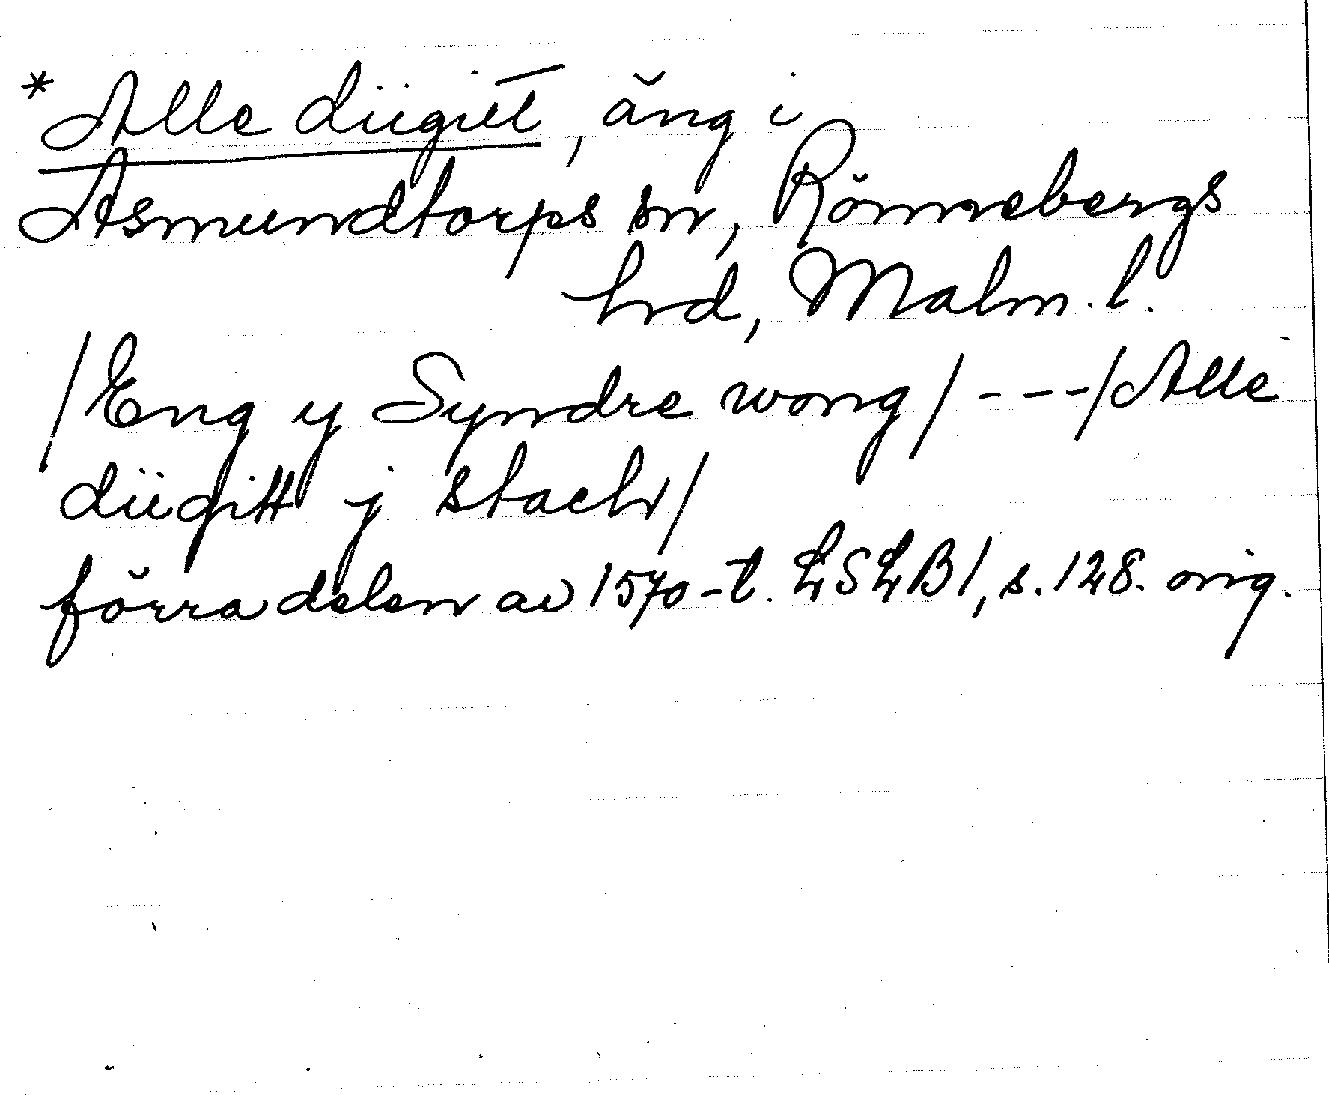 *Alle diigitt, äng i
Asmundtorps sn, Rönnebergs
hrd, Malm. l.
/Eng y Syndre wong/ ---/Alle
diigitt j stach/
förra delen av 1570-t. LSLB1, s. 128. orig.